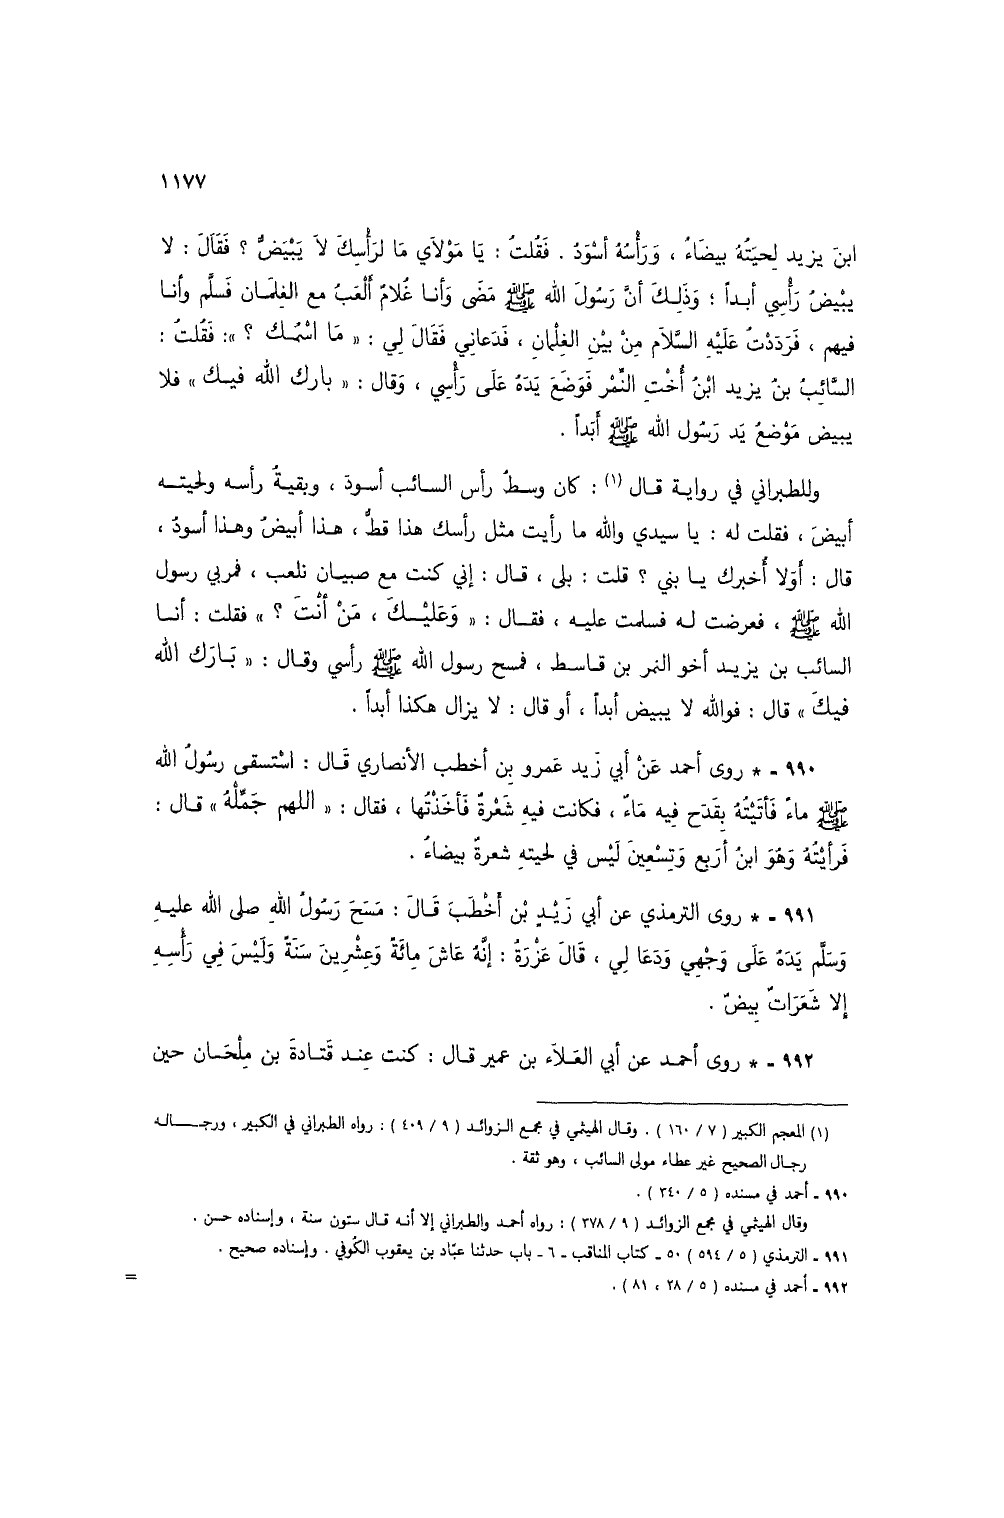 ١١٧٧
ابنَ يزيد لِحيَتُهُ بيضَاءُ ، وَرَأْسُهُ أسْوَدُ . فَقُلتُ : يَا مَوْلاَي مَا لرَأْسِكَ لاَ يَبْيَضُّ ؟ فَقَالَ : لا
يبْيضُ رَأْسِي أبـداً ؛ وَذَلِـكَ أنَّ رَسُولَ الله ﷺ مَضَى وَأنـا غُلامٌ أَلْعَبُ مع الغِلمَـان فَسلَّم وأنـا
فيهم ، فَرَدَدْتُ عَلَيْهِ السَّلاَم مِنْ بيْنِ الغِلْمانِ ، فَدَعاني فَقَالَ لِي : « مَا اسْمُـك ؟ »: فَقُلتُ :
السَّائِبُ بنُ يزيد ابْنُ أُخْتِ النَّمْر فَوَضَعَ يَدَهُ عَلَى رَأْسِي ، وَقال : « بارك الله فيـك » فلا
يبيض مَوْضعُ يَد رَسُول الله ﷺ أَبَداً .
وللطبراني في روايـة قـال (١) : كان وسـطُ رأس السـائب أسـودَ ، وبقيـةُ رأسـه ولحيتــه
أبيضَ ، فقلت له : يا سيدي والله ما رأيت مثل رأسك هذا قطُّ ، هـذا أبيضُ وهـذا أسودُ ،
قال : أَوَلا أُخبرك يـا بني ؟ قلت : بلى ، قـال : إني كنت مع صبيـان نلعب ، فمر بي رسول
الله ﷺ ، فعرضت لـه فسلمت عليـه ، فقـال : « وَعَليْـكَ ، مَنْ أنْتَ ؟ » فقلت : أنـا
السائب بن يزيـد أخو النمر بن قـاسـط ، فمسح رسول الله ﷺ رأسي وقـال : « بَـارَك الله
فيكَ » قال : فوالله لا يبيض أبداً ، أو قال : لا يزال هكذا أبداً .
٩٩٠ ـ * روى أحمد عَنْ أبي زَيد عَمرو بن أخطب الأنصاري قَال : اسْتسقى رسُولُ الله
ﷺ ماءً فَأتَيْتُهُ بِقَدَحٍ فِيه مَاءٌ ، فكانت فيهِ شَعْرةٌ فَأخَذْتُها ، فقال : « اللهم جَمِّلْهُ » قـال :
فَرأيْتُهُ وَهُوَ ابنُ أربَع وَتِسْعِينَ لَيْس في لحيتهِ شعرةٌ بيضاءُ .
٩٩١ ـ * روى الترمذي عن أبي زَيْـدٍ بْنِ أَخْطَبَ قَـالَ : مَسَحَ رَسُولُ اللهِ صلى الله عليـهِ
وَسَلَّم يَدَهُ عَلَى وَجْهِي وَدَعَا لِي ، قَالَ عَزْرَةُ : إنَّهُ عَاشَ مِائَةً وَعِشْرِينَ سَنَةً وَلَيْسَ فِي رَأْسِهِ
إلا شَعَرَاتٌ بِيضٌ .
٩٩٢ ـ * روى أحمـد عن أبي العَـلاَء بن عمير قـال : كنت عِنـد قَتـادةَ بن مِلْحَـان حين
(١) المعجم الكبير ( ٧ / ١٦٠ ) . وقـال الهيثمي في مجمع الـزوائـد ( ٩ / ٤٠٩ ) : رواه الطبراني في الكبير ، ورجــالـه
رجـال الصحيح غير عطاء مولى السائب ، وهو ثقة .
٩٩٠ ـ أحمد في مسنده ( ٥ / ٣٤٠ ) .
وقال الهيثمي في مجمع الزوائـد ( ٩ / ٣٧٨ ) : رواه أحمد والطبراني إلا أنه قـال ستون سنة ، وإسناده حسن .
٩٩١ ـ الترمذي ( ٥ / ٥٩٤ ) ٥٠ ـ كتاب المناقب ـ ٦ ـ باب حدثنا عبّاد بن يعقوب الكُوفي . وإسناده صحيح .
٩٩٢ ـ أحمد في مسنده ( ٥ / ٢٨ ، ٨١ ) .
=